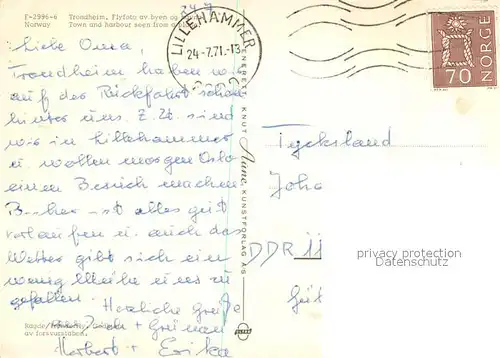 F-2996-6 Trondheim. Flyfoto av byen og
Norway Town and harbour seen from
24.7.
Liebe Oma,
Trondheim haben wir
auf der Rückfahrt schon
hinter uns. Z. Zt. sind
wir in Lillehammer
u. wollen morgen Oslo
einen Besuch machen.
Bisher ist alles gut
verlaufen u. auch das
Wetter gibt sich ein
wenig Mühe uns zu
gefallen.
Herzliche Grüße
Herbert + Erika
av forsvarsstaben.
ENERETT: KNUT Aune KUNSTFORLAG AS
LILLEHAMMER
24-7.71.-13
NORGE
70
Tyskland
DDR
privacy protection
Datenschutz